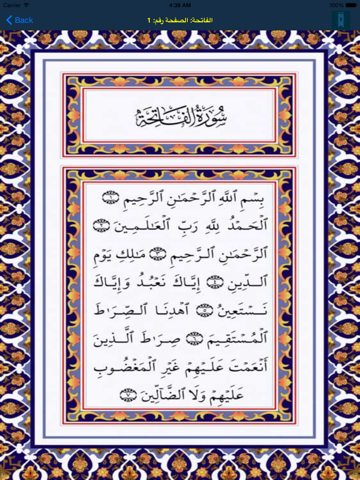 Carrier 4:36 AM
Back الفاتحة: الصفحة رقم: 1
سُورَةُ الفَاتِحَةِ
بِسْمِ ٱللَّهِ ٱلرَّحْمَٰنِ ٱلرَّحِيمِ ١
ٱلْحَمْدُ لِلَّهِ رَبِّ ٱلْعَٰلَمِينَ ٢
ٱلرَّحْمَٰنِ ٱلرَّحِيمِ ٣ مَٰلِكِ يَوْمِ
ٱلدِّينِ ٤ إِيَّاكَ نَعْبُدُ وَإِيَّاكَ
نَسْتَعِينُ ٥ ٱهْدِنَا ٱلصِّرَٰطَ
ٱلْمُسْتَقِيمَ ٦ صِرَٰطَ ٱلَّذِينَ
أَنْعَمْتَ عَلَيْهِمْ غَيْرِ ٱلْمَغْضُوبِ
عَلَيْهِمْ وَلَا ٱلضَّآلِّينَ ٧